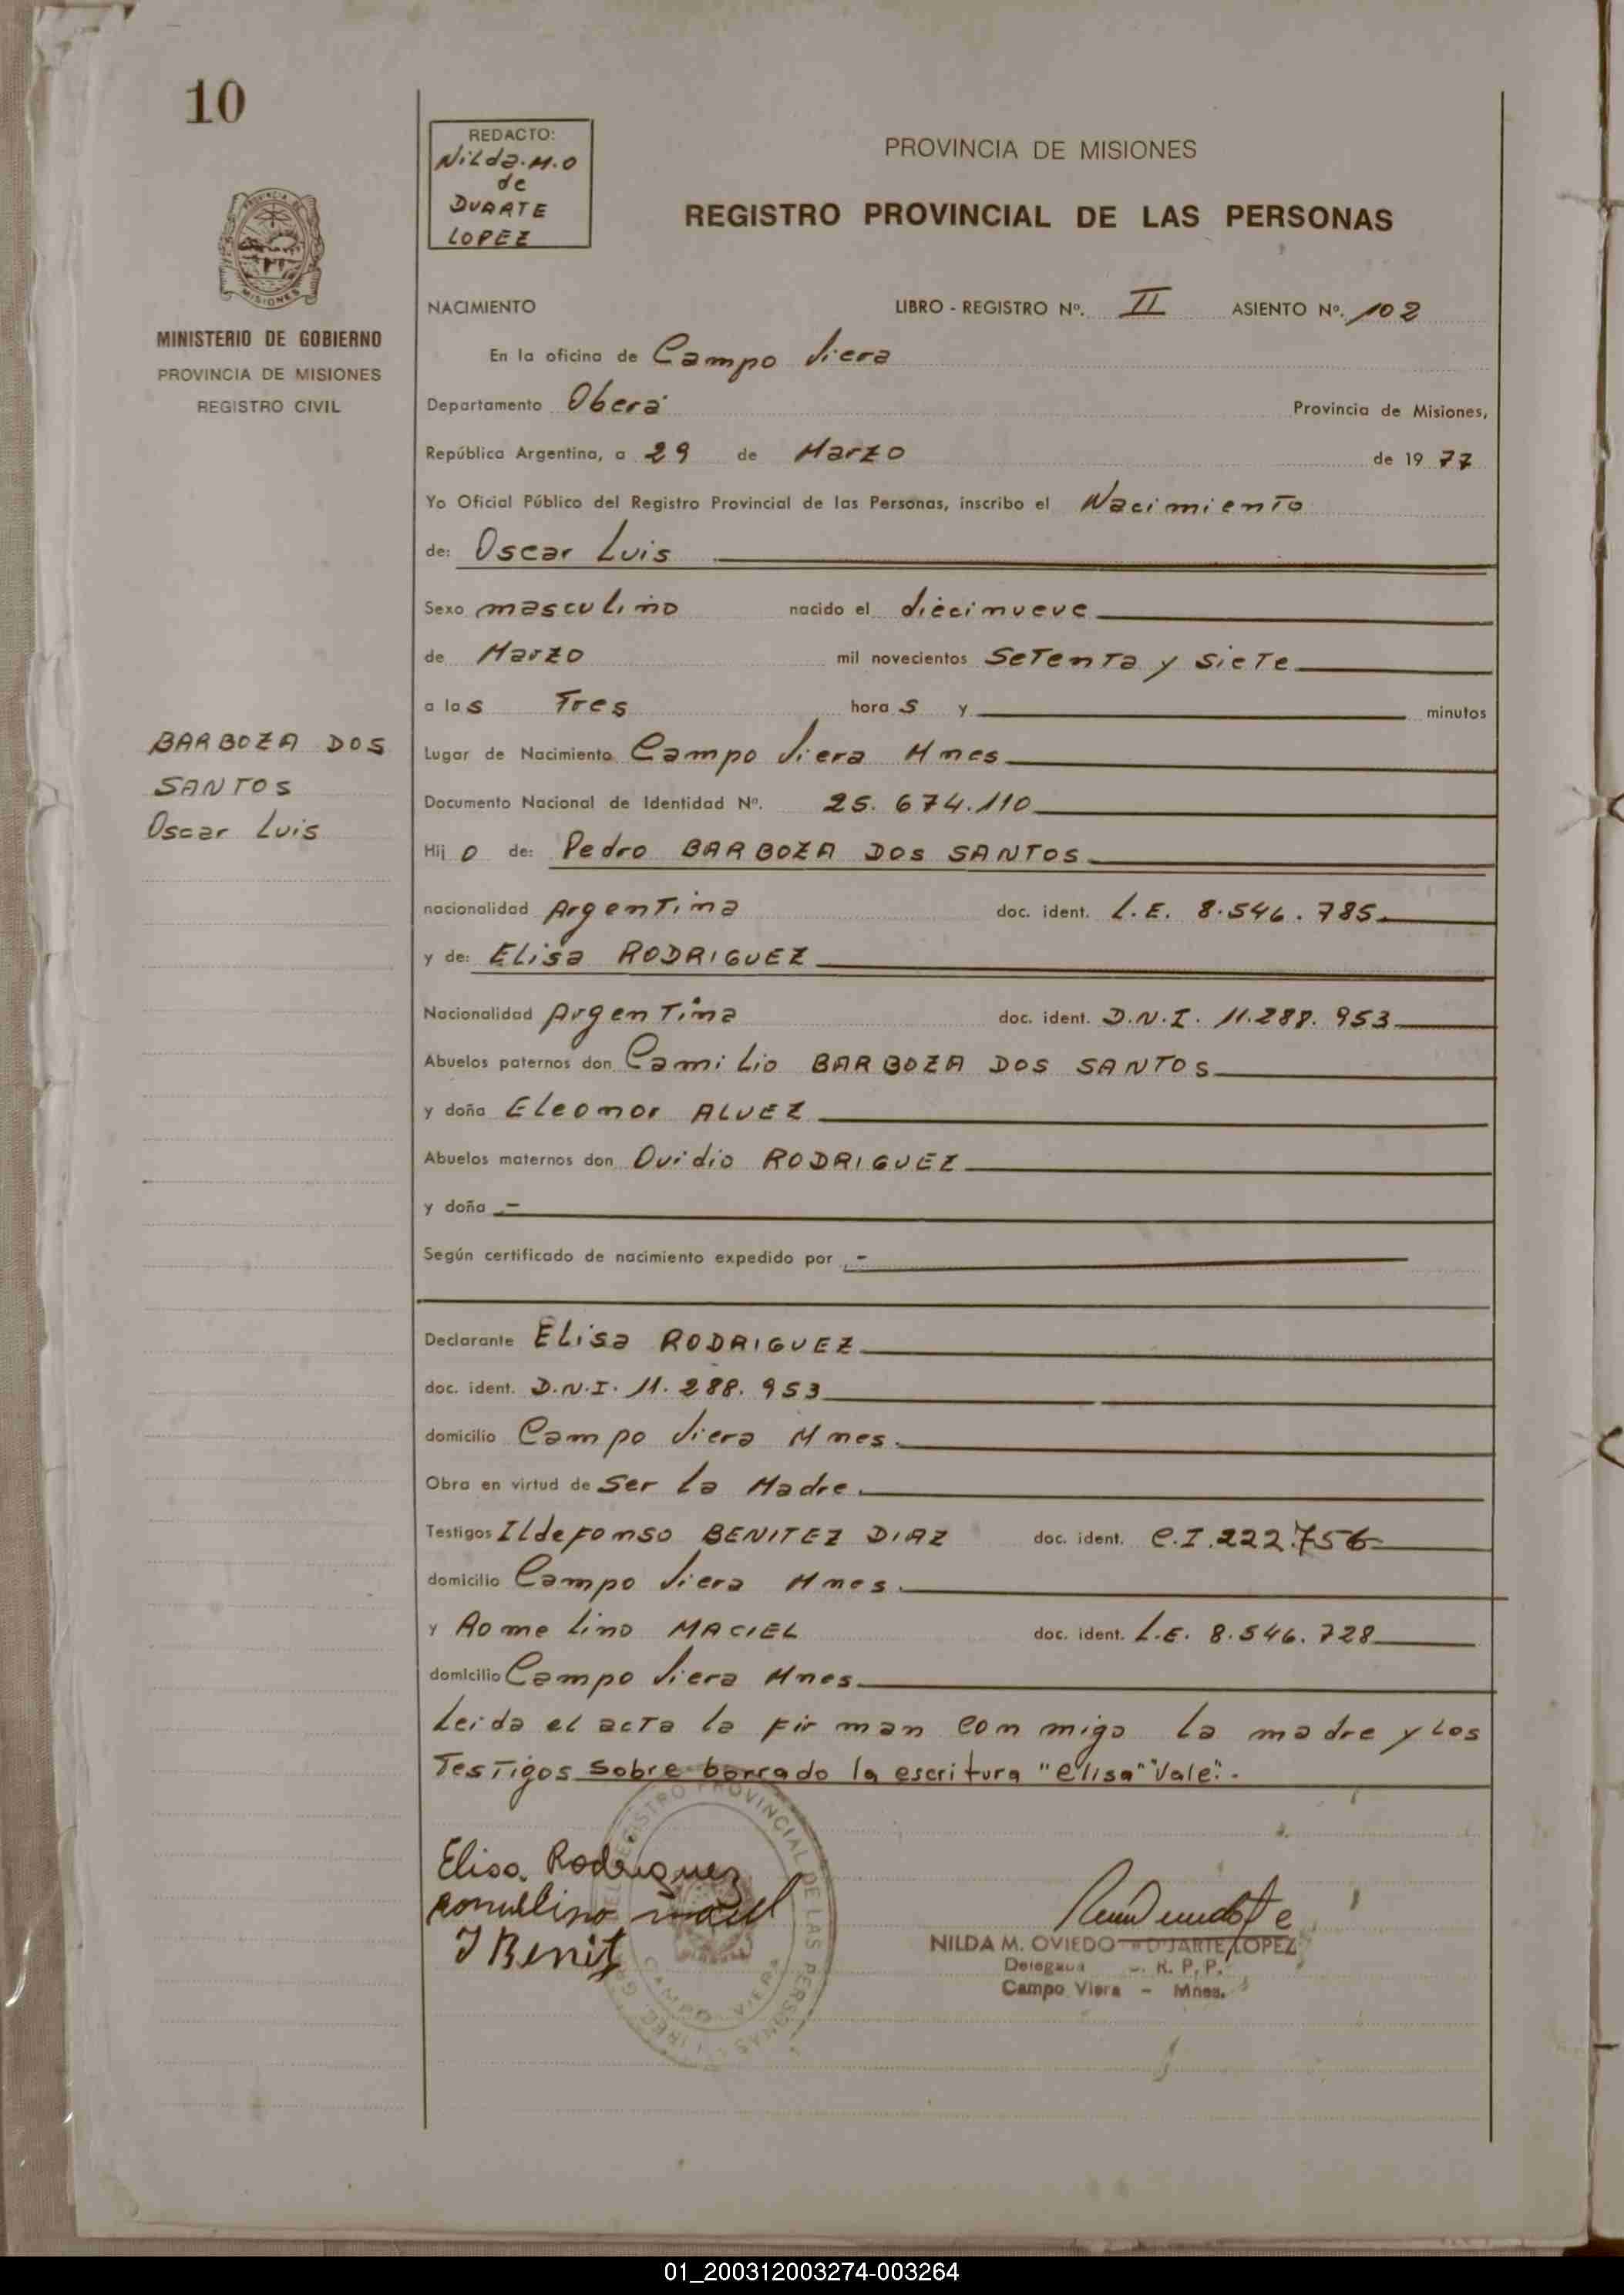 10
REDACTO:
Nilda.M.O
de
DUARTE
LOPEZ
PROVINCIA DE MISIONES
REGISTRO PROVINCIAL DE LAS PERSONAS
MINISTERIO DE GOBIERNO
PROVINCIA DE MISIONES
REGISTRO CIVIL
NACIMIENTO LIBRO - REGISTRO Nº. II ASIENTO Nº. 102
En la oficina de Campo Viera
Departamento Oberá Provincia de Misiones,
República Argentina, a 29 de Marzo de 1977
Yo Oficial Público del Registro Provincial de las Personas, inscribo el Nacimiento
de: Oscar Luis
Sexo masculino nacido el diecinueve
de Marzo mil novecientos Setenta y siete
a las Tres horas y minutos
BARBOZA DOS
SANTOS
Oscar Luis
Lugar de Nacimiento Campo Viera Mnes
Documento Nacional de Identidad Nº. 25.674.110
Hijo de: Pedro BARBOZA DOS SANTOS
nacionalidad Argentina doc. ident. L.E. 8.546.785
y de: Elisa RODRIGUEZ
Nacionalidad Argentina doc. ident. D.N.I. 11.288.953
Abuelos paternos don Camilio BARBOZA DOS SANTOS
y doña Eleonor ALVEZ
Abuelos maternos don Ovidio RODRIGUEZ
y doña .-
Según certificado de nacimiento expedido por .-
Declarante Elisa RODRIGUEZ
doc. ident. D.N.I. 11.288.953
domicilio Campo Viera Mnes.
Obra en virtud de Ser la Madre.
Testigos Ildefonso BENITEZ DIAZ doc. ident. C.I.222.756
domicilio Campo Viera Mnes.
y Romelino MACIEL doc. ident. L.E. 8.546.728
domicilio Campo Viera Mnes
Leida el acta la firman conmigo la madre y los
Testigos sobre borrado la escritura "elisa" "Vale".-
Elisa Rodriguez
Romelino Maciel
I Benit
NILDA M. OVIEDO DUARTE LOPEZ
Delegada R. P. P.
Campo Viera - Mnes.
REGISTRO PROVINCIAL DE LAS PERSONAS
CAMPO VIERA
01_200312003274-003264